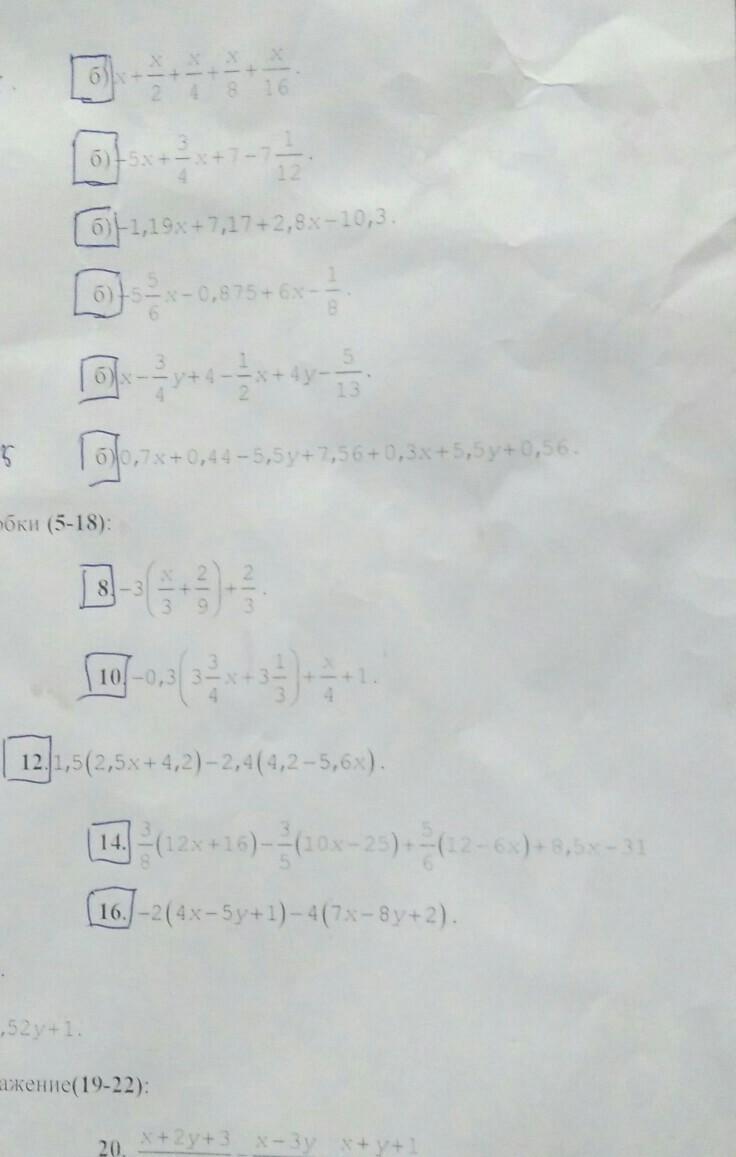 б) x + x/2 + x/4 + x/8 + x/16.
б) -5x + 3/4 x + 7 - 7 1/12.
б) -1,19x + 7,17 + 2,8x - 10,3.
б) -5 5/6 x - 0,875 + 6x - 1/8.
б) x - 3/4 y + 4 - 1/2 x + 4y - 5/13.
б) 0,7x + 0,44 - 5,5y + 7,56 + 0,3x + 5,5y + 0,56.
обки (5-18):
8. -3(x/3 + 2/9) + 2/3.
10. -0,3(3 3/4 x + 3 1/3) + x/4 + 1.
12. 1,5(2,5x + 4,2) - 2,4(4,2 - 5,6x).
14. 3/8(12x + 16) - 3/5(10x - 25) + 5/6(12 - 6x) + 8,5x - 31
16. -2(4x - 5y + 1) - 4(7x - 8y + 2).
,52y + 1.
ажение(19-22):
20. x + 2y + 3 x - 3y x + y + 1